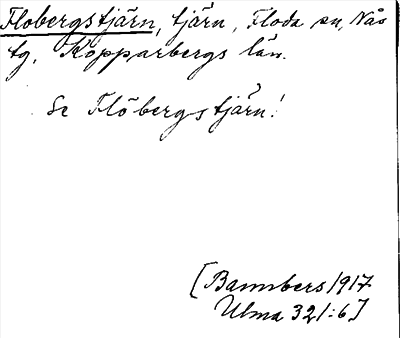 Flobergstjärn, tjärn, Floda sn, Nås
tg, Kopparbergs län.
Se Flöbergstjärn!
[Bannbers 1917
Ulma 321:6]